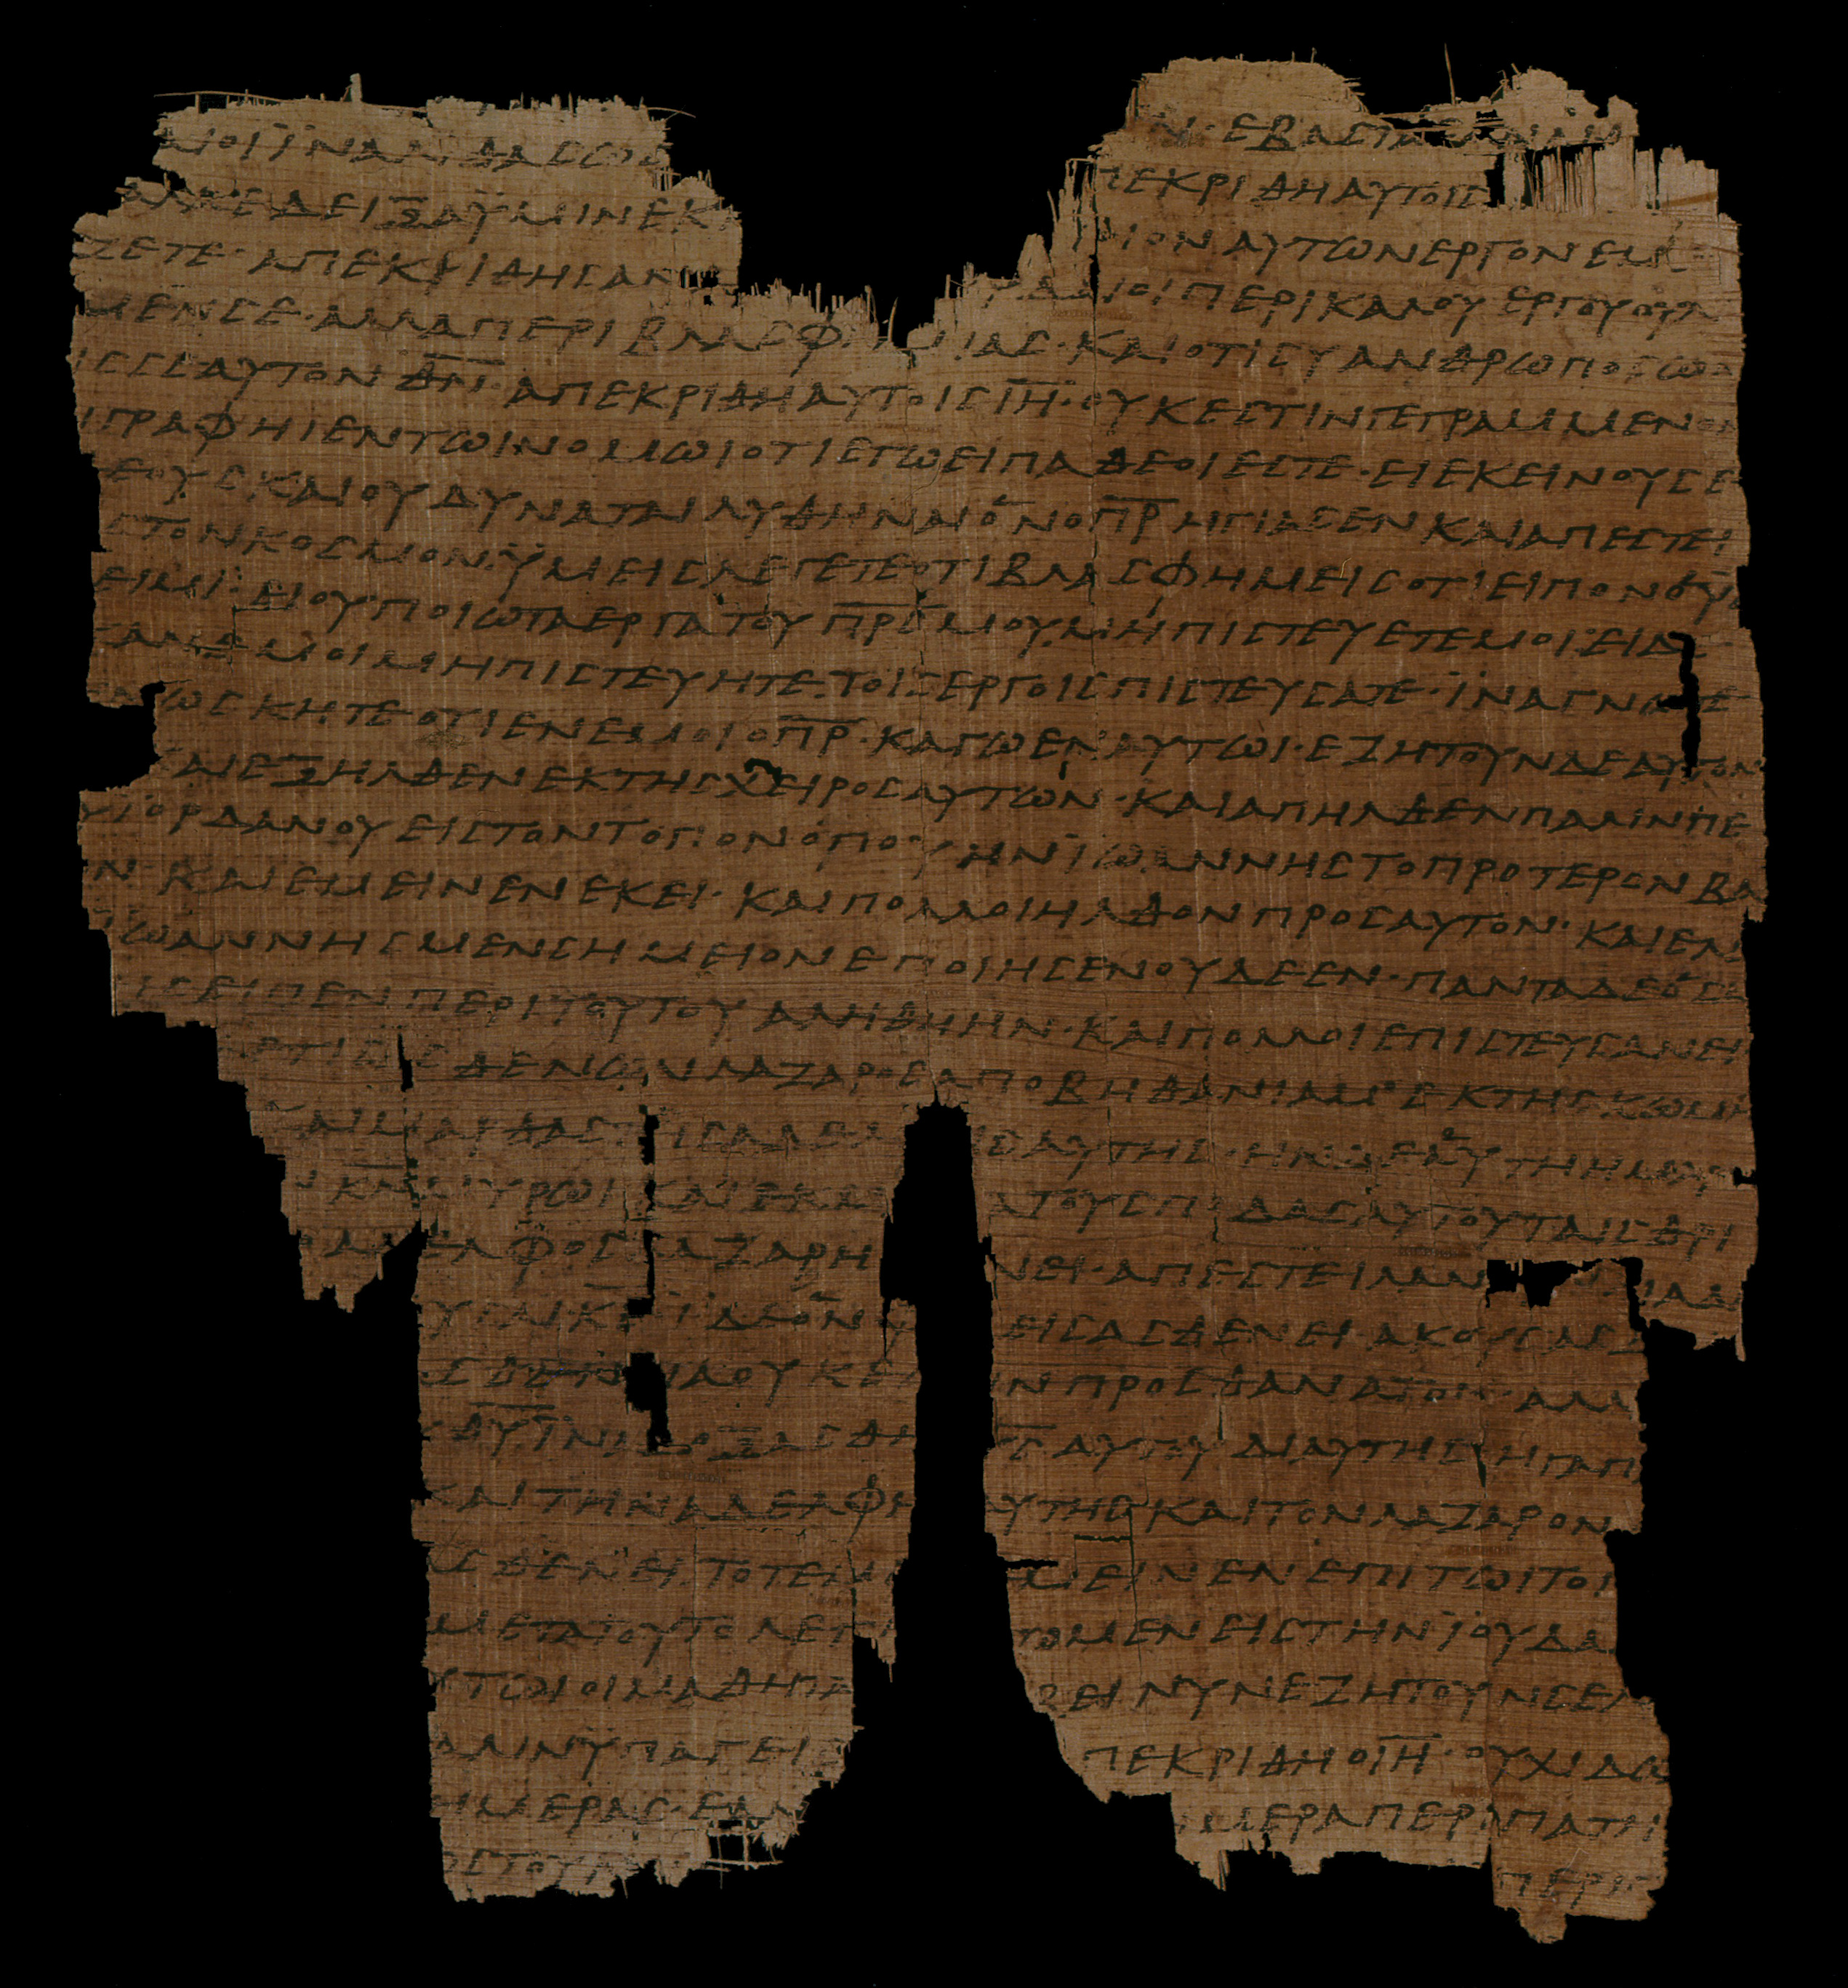 Ν·ΕΒΑϹΤΑϹΑΝ
ΑΙΟΙΪΝΑΛΙΘΑϹΩ ΠΕΚΡΙΘΗΑΥΤΟΙϹ
ΕΔΕΙΞΑΫΜΙΝΕΚ ΟΙΟΝΑΥΤΩΝΕΡΓΟΝΕΜΕ
ΖΕΤΕ·ΑΠΕΚΡΙΘΗϹΑΝ ΔΑΙΟΙΠΕΡΙΚΑΛΟΥΕΡΓΟΥΟΥΛ
ΜΕΝϹΕ·ΑΛΛΑΠΕΡΙΒΛΑϹΦΗΜΙΑϹ·ΚΑΙΟΤΙϹΥΑΝΘΡΩΠΟϹΩ
ΙϹϹΕΑΥΤΟΝΘ̅Ν̅·ΑΠΕΚΡΙΘΗΑΥΤΟΙϹΙ̅Η̅·ΟΥΚΕϹΤΙΝΓΕΓΡΑΜΜΕΝΟΝ
ΙΓΡΑΦΗΙΕΝΤΩΙΝΟΜΩΙΟΤΙΕΓΩΕΙΠΑΘΕΟΙΕϹΤΕ·ΕΙΕΚΕΙΝΟΥϹΕ
ΕΟΥϹ·ΚΑΙΟΥΔΥΝΑΤΑΙΛΥΘΗΝΑΙΟΝΟΠ̅Ρ̅ΗΓΙΑϹΕΝΚΑΙΑΠΕϹΤΕΙ
ϹΤΟΝΚΟϹΜΟΝ·ΫΜΕΙϹΛΕΓΕΤΕΟΤΙΒΛΑϹΦΗΜΕΙϹΟΤΙΕΙΠΟΝΟΥ
ΕΙΜΙ·ΕΙΟΥΠΟΙΩΤΑΕΡΓΑΤΟΥΠ̅Ρ̅Ϲ̅ΜΟΥΜΗΠΙϹΤΕΥΕΤΕΜΟΙ·ΕΙΔΕ
ΚΑΝΕΜΟΙΜΗΠΙϹΤΕΥΗΤΕ·ΤΟΙϹΕΡΓΟΙϹΠΙϹΤΕΥϹΑΤΕ·ΪΝΑΓΝΩΤΕ
ΩϹΚΗΤΕΟΤΙΕΝΕΜΟΙΟΠ̅Ρ̅·ΚΑΓΩΕΝΑΥΤΩΙ·ΕΖΗΤΟΥΝΔΕΑΥΤΟΝ
ΑΙΕΞΗΛΘΕΝΕΚΤΗϹΧΕΙΡΟϹΑΥΤΩΝ·ΚΑΙΑΠΗΛΘΕΝΠΑΛΙΝΠΕ
ΥΪΟΡΔΑΝΟΥΕΙϹΤΟΝΤΟΠΟΝΟΠΟΥΗΝΪΩΑΝΝΗϹΤΟΠΡΟΤΕΡΟΝΒΑ
Ν·ΚΑΙΕΜΕΙΝΕΝΕΚΕΙ·ΚΑΙΠΟΛΛΟΙΗΛΘΟΝΠΡΟϹΑΥΤΟΝ·ΚΑΙΕΛ
ΪΩΑΝΝΗϹΜΕΝϹΗΜΕΙΟΝΕΠΟΙΗϹΕΝΟΥΔΕΕΝ·ΠΑΝΤΑΔΕΟϹ
ΗϹΕΙΠΕΝΠΕΡΙΤΟΥΤΟΥΑΛΗΘΗΗΝ·ΚΑΙΠΟΛΛΟΙΕΠΙϹΤΕΥϹΑΝΕΙ
ΕΤΙϹΑϹΘΕΝΩΝΛΑΖΑΡΟϹΑΠΟΒΗΘΑΝΙΑϹΕΚΤΗϹΚΩΜΗ
ΚΑΙΜΑΡΘΑϹΤΗϹΑΔΕΛΦΗϹΑΥΤΗϹ·ΗΝΔΕΑΥΤΗΗΜΑΡ
ΝΚ̅Ν̅ΜΥΡΩΙΚΑΙΕΚΜΑ ΑΤΟΥϹΠΟΔΑϹΑΥΤΟΥΤΑΙϹΘΡΙ
ΟΑΔΕΛΦΟϹΛΑΖΑΡΗ ΝΕΙ·ΑΠΕϹΤΕΙΛΑΝ ΙΑΔ
ΥϹΑΙΚ̅Ε̅ΪΔΕΟΝΦ ΕΙϹΑϹΘΕΝΕΙ·ΑΚΟΥϹΑϹΔ
ΑϹΘΕΝΙΑΟΥΚΕϹ ΙΝΠΡΟϹΘΑΝΑΤΟΝ·ΑΛΛ
Θ̅Υ̅ΪΝΑΔΟΞΑϹΘΗ Ϲ̅ΑΥΤΟΥΔΙΑΥΤΗϹ·ΗΓΑΠ
ΚΑΙΤΗΝΑΔΕΛΦΗ ΥΤΗϹΚΑΙΤΟΝΛΑΖΑΡΟΝ
ΑϹΘΕΝΕΙ·ΤΟΤΕΜ ΜΕΙΝΕΝ·ΕΠΙΤΩΙΤΟΠ
ΜΕΤΑΤΟΥΤΟΛΕΓΕΙ ΓΩΜΕΝΕΙϹΤΗΝΪΟΥΔΑ
ΥΤΩΙΟΙΜΑΘΗΤΑ ΒΕΙΝΥΝΕΖΗΤΟΥΝϹΕΛ
ΑΛΙΝΫΠΑΓΕΙϹ ΠΕΚΡΙΘΗΟΙ̅Η̅·ΟΥΧΙΔΩ
ΗΜΕΡΑϹ·ΕΑΝ ΗΜΕΡΑΠΕΡΙΠΑΤΗ
ϹΤΟΥΚ ΠΕΡΙΠ